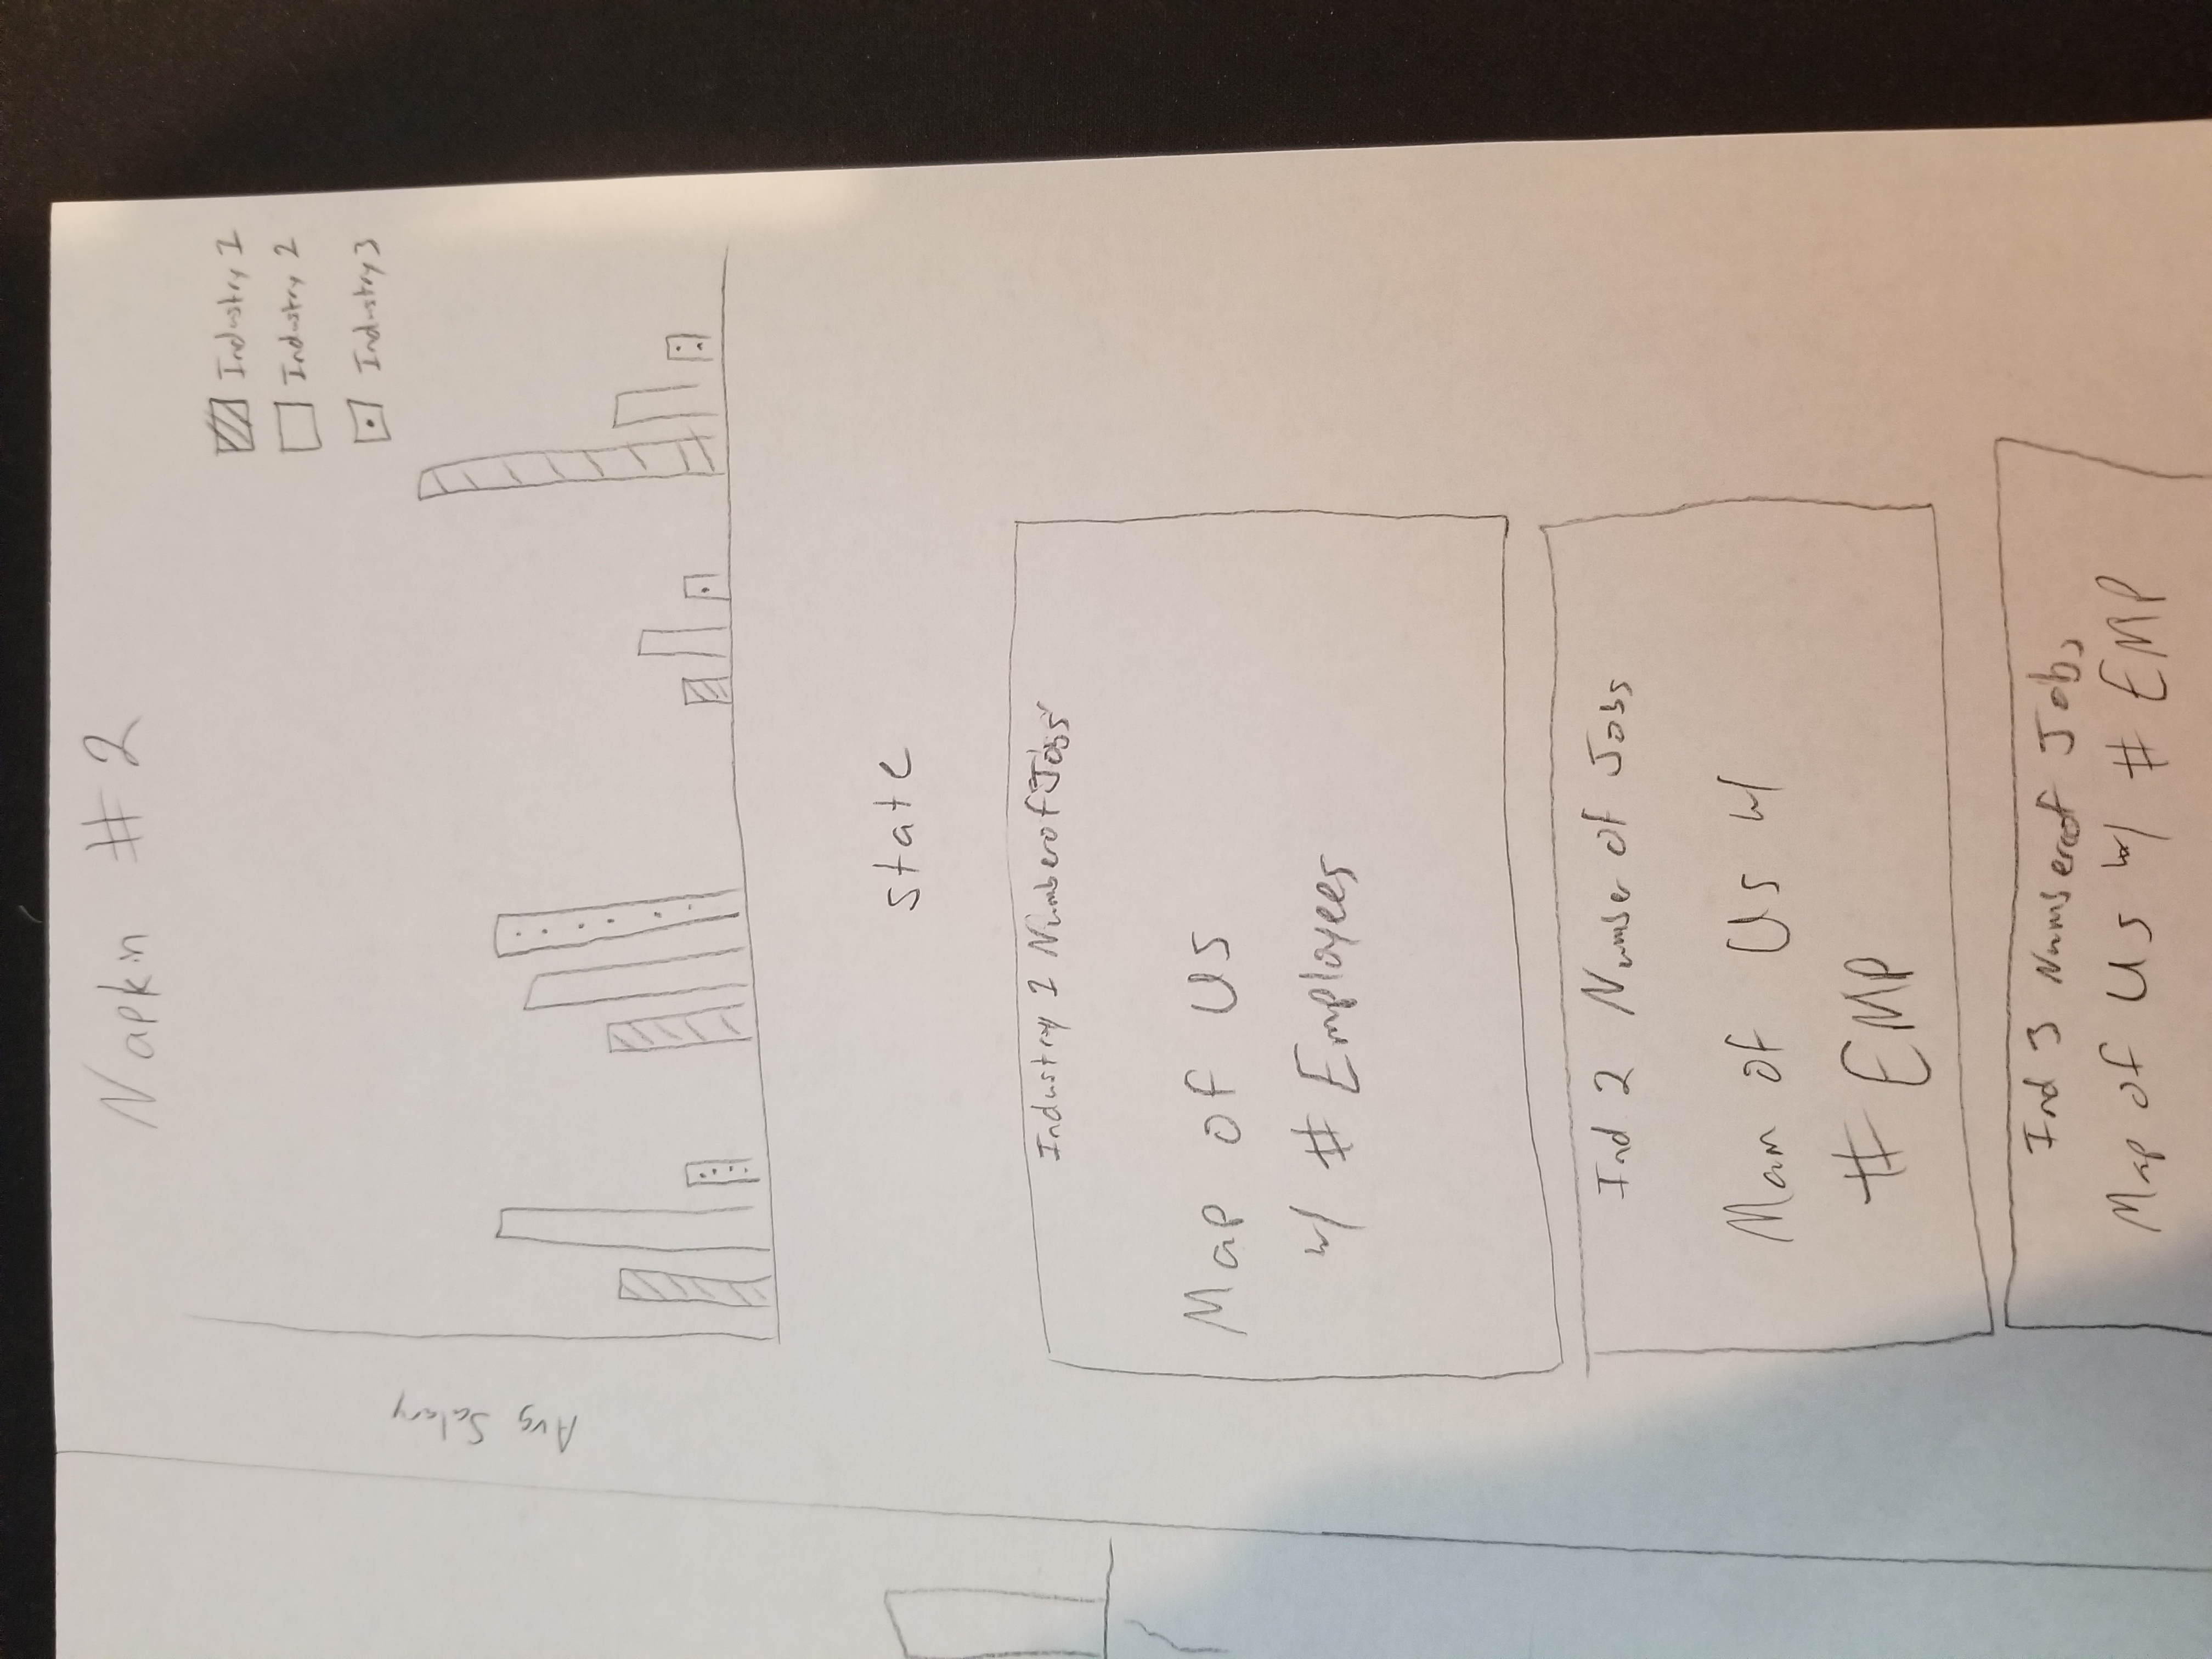 Napkin # 2
Industry 1
Industry 2
Industry 3
Avg Salary
state
Industry 1 Number of Jobs
Map of US
w/ # Employees
Ind 2 Number of Jobs
Mam of Us w/
# EMP
Ind 3 Number of Jobs
Map of US w/ # EMP